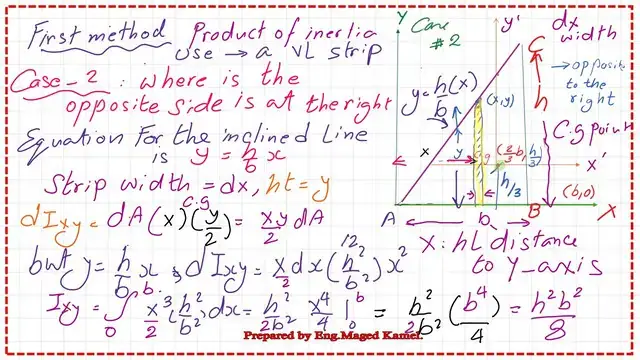 First method Product of inertia
use → a VL strip
Case-2 : where is the
opposite side is at the right
Equation For the inclined Line
is y = h/b x
Strip width = dx, ht = y
c.g
dIxy = dA (x)(y/2) = x.y/2 dA
but y = h/b x & dIxy = x/2 dx (h²/b²) x²
12
Ixy = ∫₀ᵇ x³/2 (h²/b²) dx = h²/2b² x⁴/4 |₀ᵇ = h²/2b² (b⁴/4) = h²b²/8
Prepared by Eng.Maged Kamel.
Y
Case #2
y'
dx width
C
→ opposite
to the
right
y = h/b (x)
(x,y)
h
C.g point
x
y
g
(2/3 b, h/3)
x'
h/3
(b,0)
A
b
B
X
X: hL distance
to Y-axis